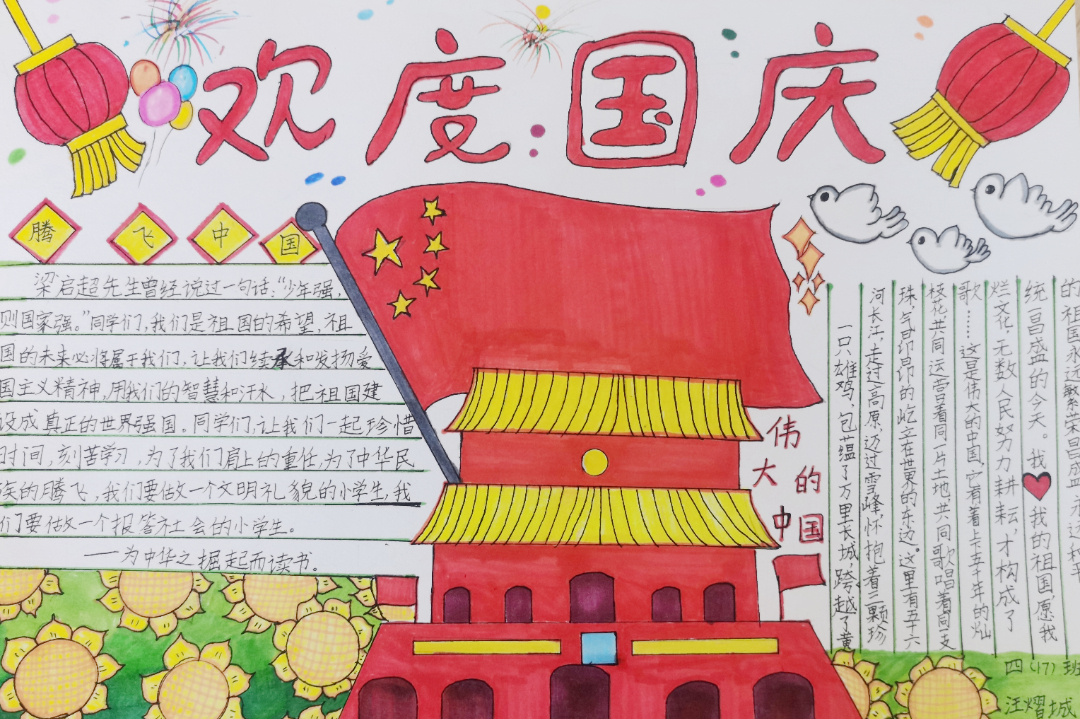 欢度国庆
腾飞中国
梁启超先生曾经说过一句话:“少年强,
则国家强。”同学们,我们是祖国的希望,祖
国的未来必将属于我们,让我们继承和发扬爱
国主义精神,用我们的智慧和汗水,把祖国建
设成真正的世界强国。同学们,让我们一起珍惜
时间,刻苦学习,为了我们肩上的重任,为了中华民
族的腾飞,我们要做一个文明礼貌的小学生,我
们要做一个报答社会的小学生。
——为中华之掘起而读书。
伟大的中国
一只雄鸡,包蕴了万里长城,跨越了黄
河长江,走过高原,迈过雪峰,怀抱着二颗珍
珠,气昂昂的屹立在世界的东边。这里有五十六
枝花,共同运营着同一片土地,共同歌唱着同一支
歌……这是伟大的中国,它有着上下五千年的灿
烂文化,无数人民努力耕耘,才构成了
统一昌盛的今天。我❤我的祖国,愿我
的祖国永远繁荣昌盛,永远和平
四(17)班
汪熠城